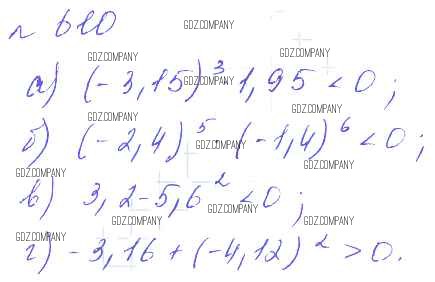 № 610
GDZ.COMPANY
GDZ.COMPANY GDZ.COMPANY
а) (-3,15)³ · 1,95 < 0;
GDZ.COMPANY
GDZ.COMPANY GDZ.COMPANY
б) (-2,4)⁵ · (-1,4)⁶ < 0;
GDZ.COMPANY
GDZ.COMPANY GDZ.COMPANY
в) 3,2 - 5,6² < 0;
GDZ.COMPANY
GDZ.COMPANY GDZ.COMPANY
GDZ.COMPANY
г) -3,16 + (-4,12)² > 0.